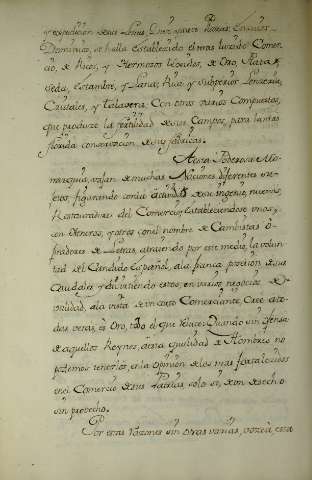 y espedicion de sus Lonas, Linos, y
Dominios, se halla establecido el mas lucido Comer-
cio, de Ricos, y Hermosos texidos, de Oro, Plata,
seda, estambre, y Lana, Rica y Superior Lenzeria,
Cristales, y Talavera. Con otros varios Compuestos,
que produze la fertilidad de sus Campos, para la mas
florida conservacion de sus fabricas.
A esta Poderosa Mo-
narquia, vajan de muchas Naciones diferentes su-
jetos, figurando con la actividad de su ingenio, nuevos
Restauradores del Comercio, estableciendose unos,
con Generos, y otros con el nombre de Cambistas ò
firadores de Letras, atrayendo por este medio, la volun-
tad del Candido Español, a la franca posecion de sus
Caudales, y divirtiendo estos, en varios negocios de
utilidad, a la vista de un Comerciante, Cree a to-
das veras, es Oro, todo el que Quando sin ofensa
de aquellos Reynos, à esta qualidad de Hombres no
podemos tenerlos, en la opinion de los mas fortalecidos
en el Comercio de sus Patrias, solo si, de un desecho
sin probecho.
Por estas razones sin otras varias, vozea, esta